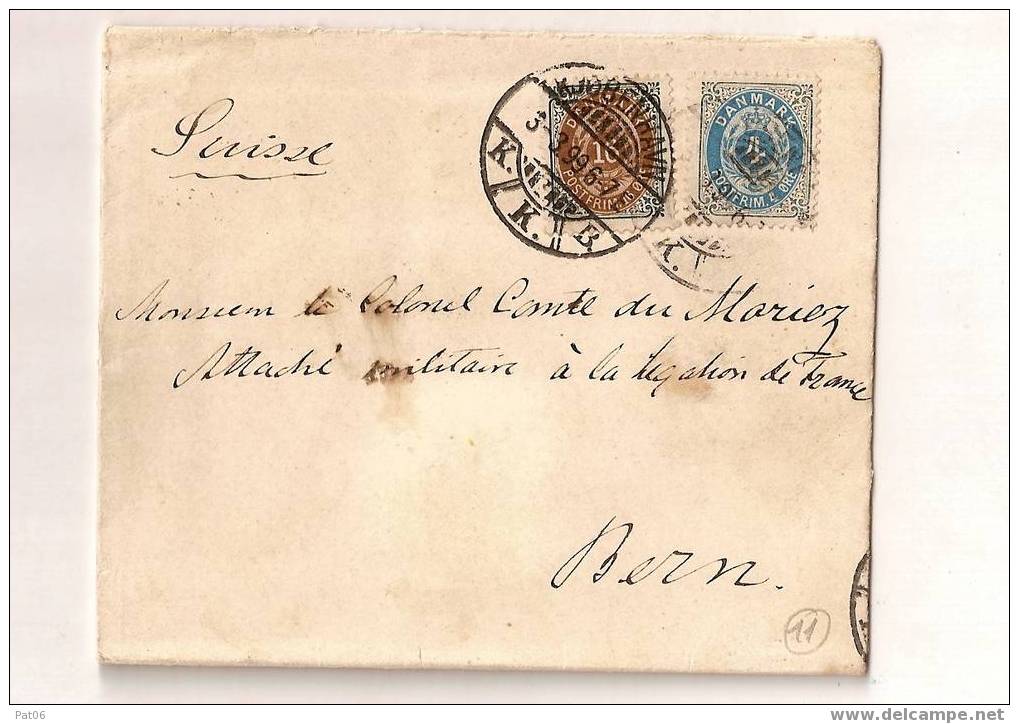 DANMARK
POSTFRIM. 16 Ø
KJØBENHAVN
3 3 99 6-7
K. K. B.
DANMARK
4
POSTFRIM. 4 ØRE
K.
Suisse
Monsieur le Colonel Comte du Moriez
Attaché militaire à la légation de France
Bern.
11
Pat06
www.delcampe.net